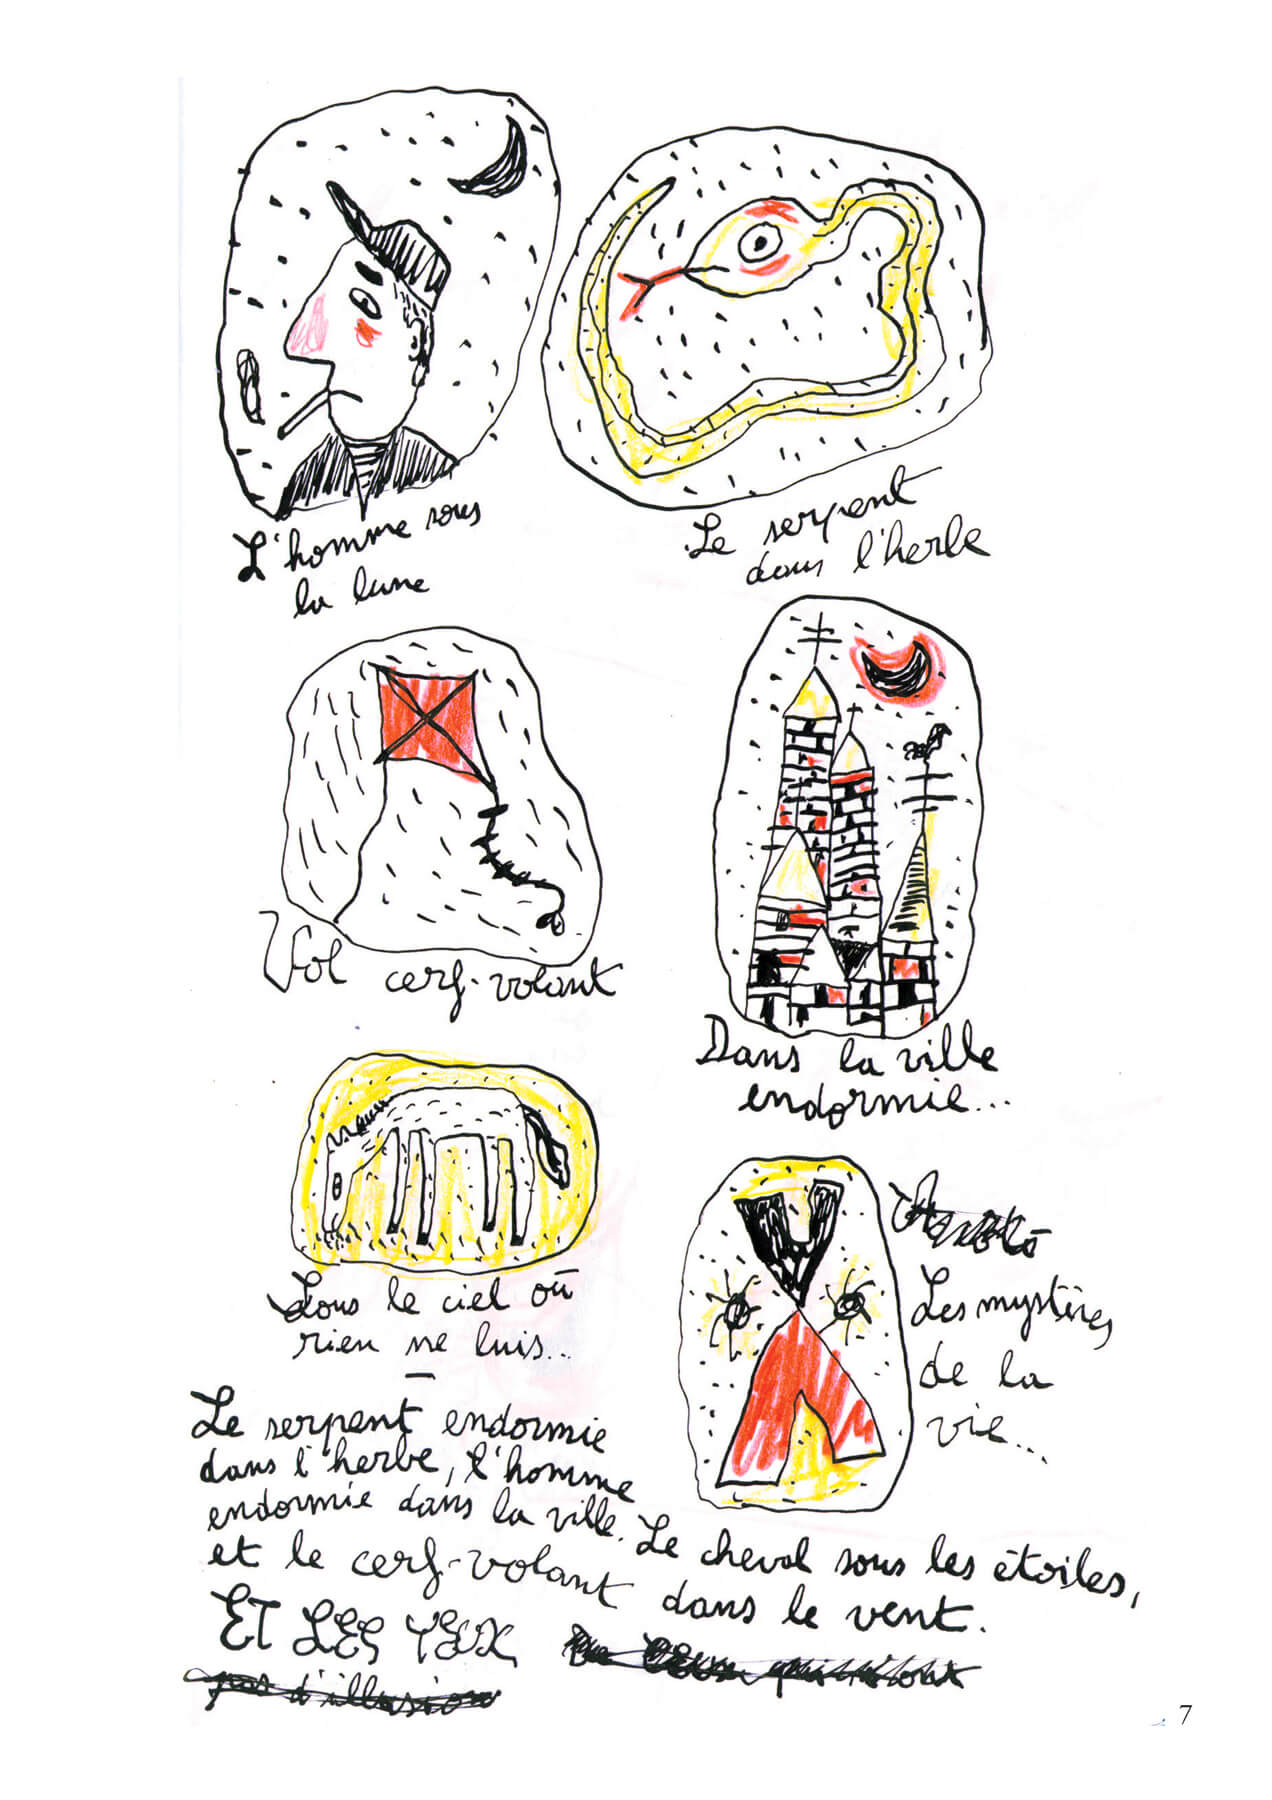 L'homme sous
la lune
Le serpent
dans l'herbe
Vol cerf-volant
Dans la ville
endormie...
Sous le ciel où
rien ne luis...
Les mystères
de la
vie...
Le serpent endormie
dans l'herbe, l'homme
endormie dans la ville. Le cheval sous les étoiles,
et le cerf-volant dans le vent.
ET LES YEUX
pas d'illusion
7